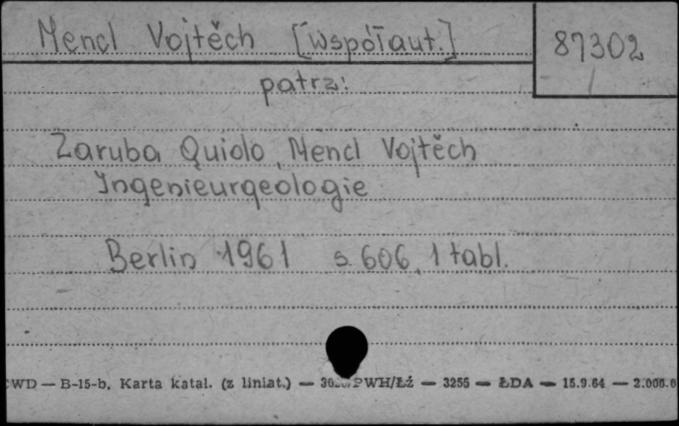 Mencl Vojtěch [współaut.]
87302
patrz:
Zaruba Quido, Mencl Vojtěch
Ingenieurgeologie
Berlin 1961 s. 606, 1 tabl.
CWD — B-15-b. Karta katal. (z liniat.) — PWH/Łź — 3255 — ŁDA — 15.9.64 —